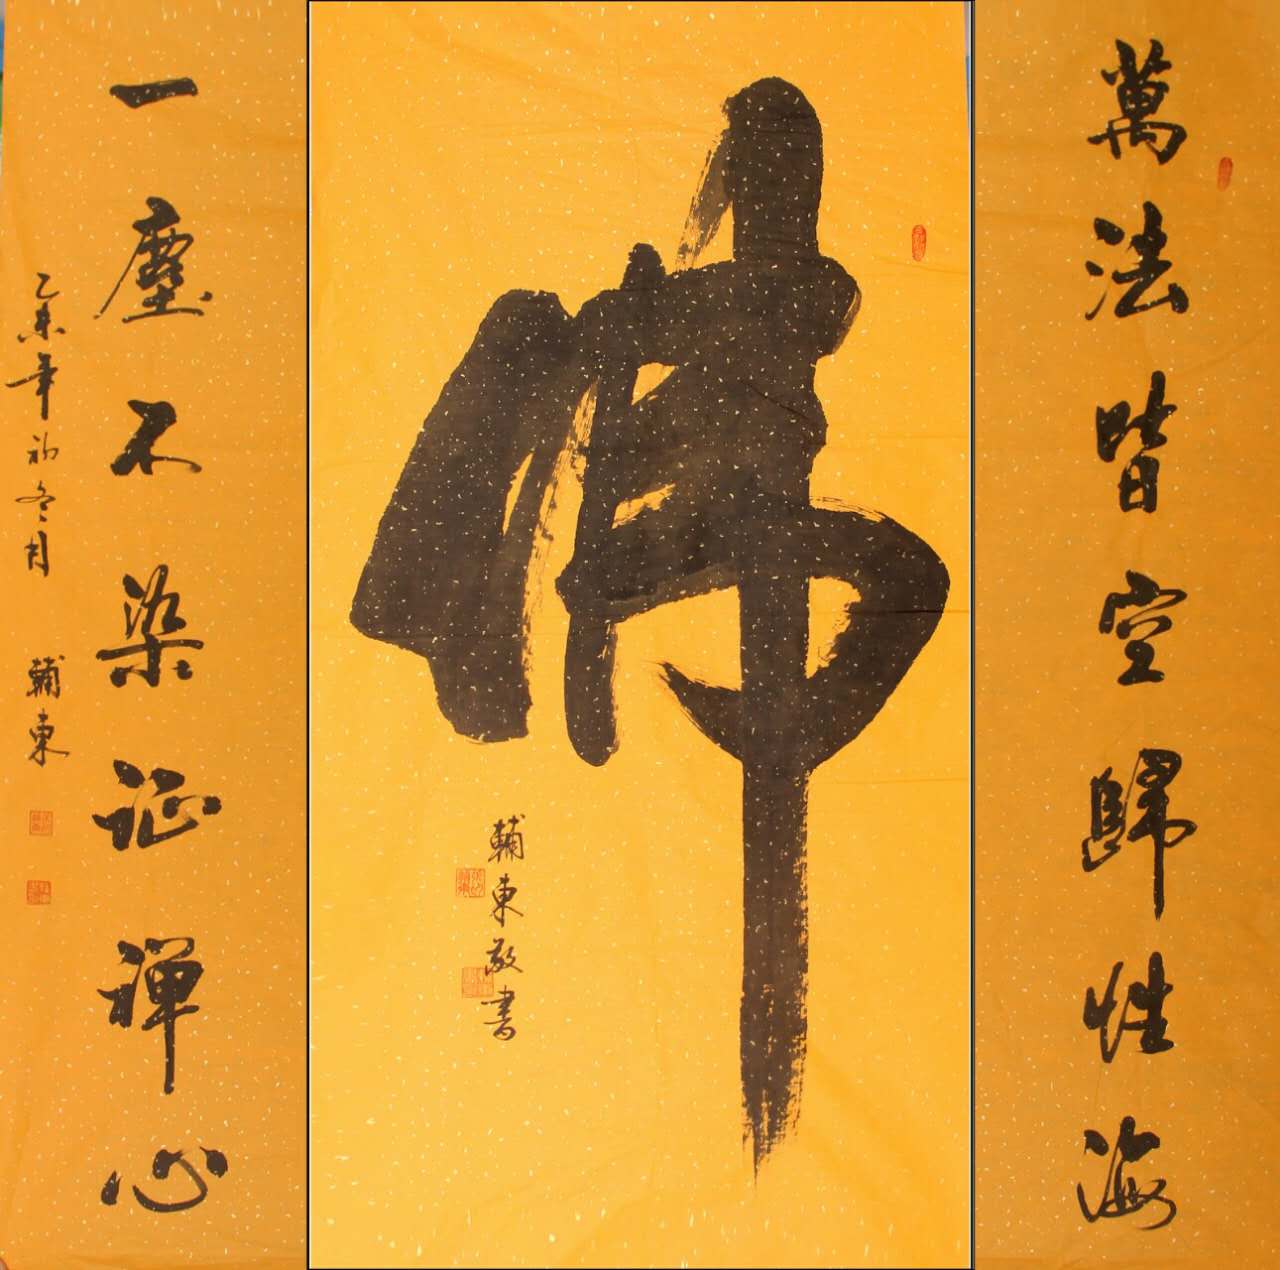 萬法皆空歸性海
佛
輔東敬書
一塵不染证禪心
乙未年初冬月 輔東